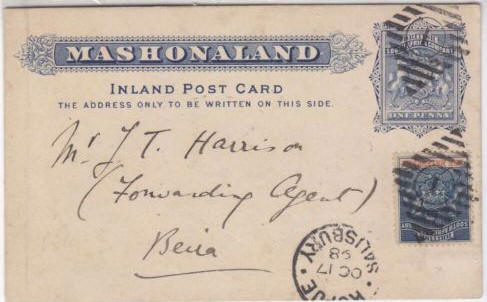 MASHONALAND
INLAND POST CARD
THE ADDRESS ONLY TO BE WRITTEN ON THIS SIDE.
ONE PENNY
Mr J. T. Harrison
(Forwarding Agent)
Beira
SALISBURY
OC 17
98